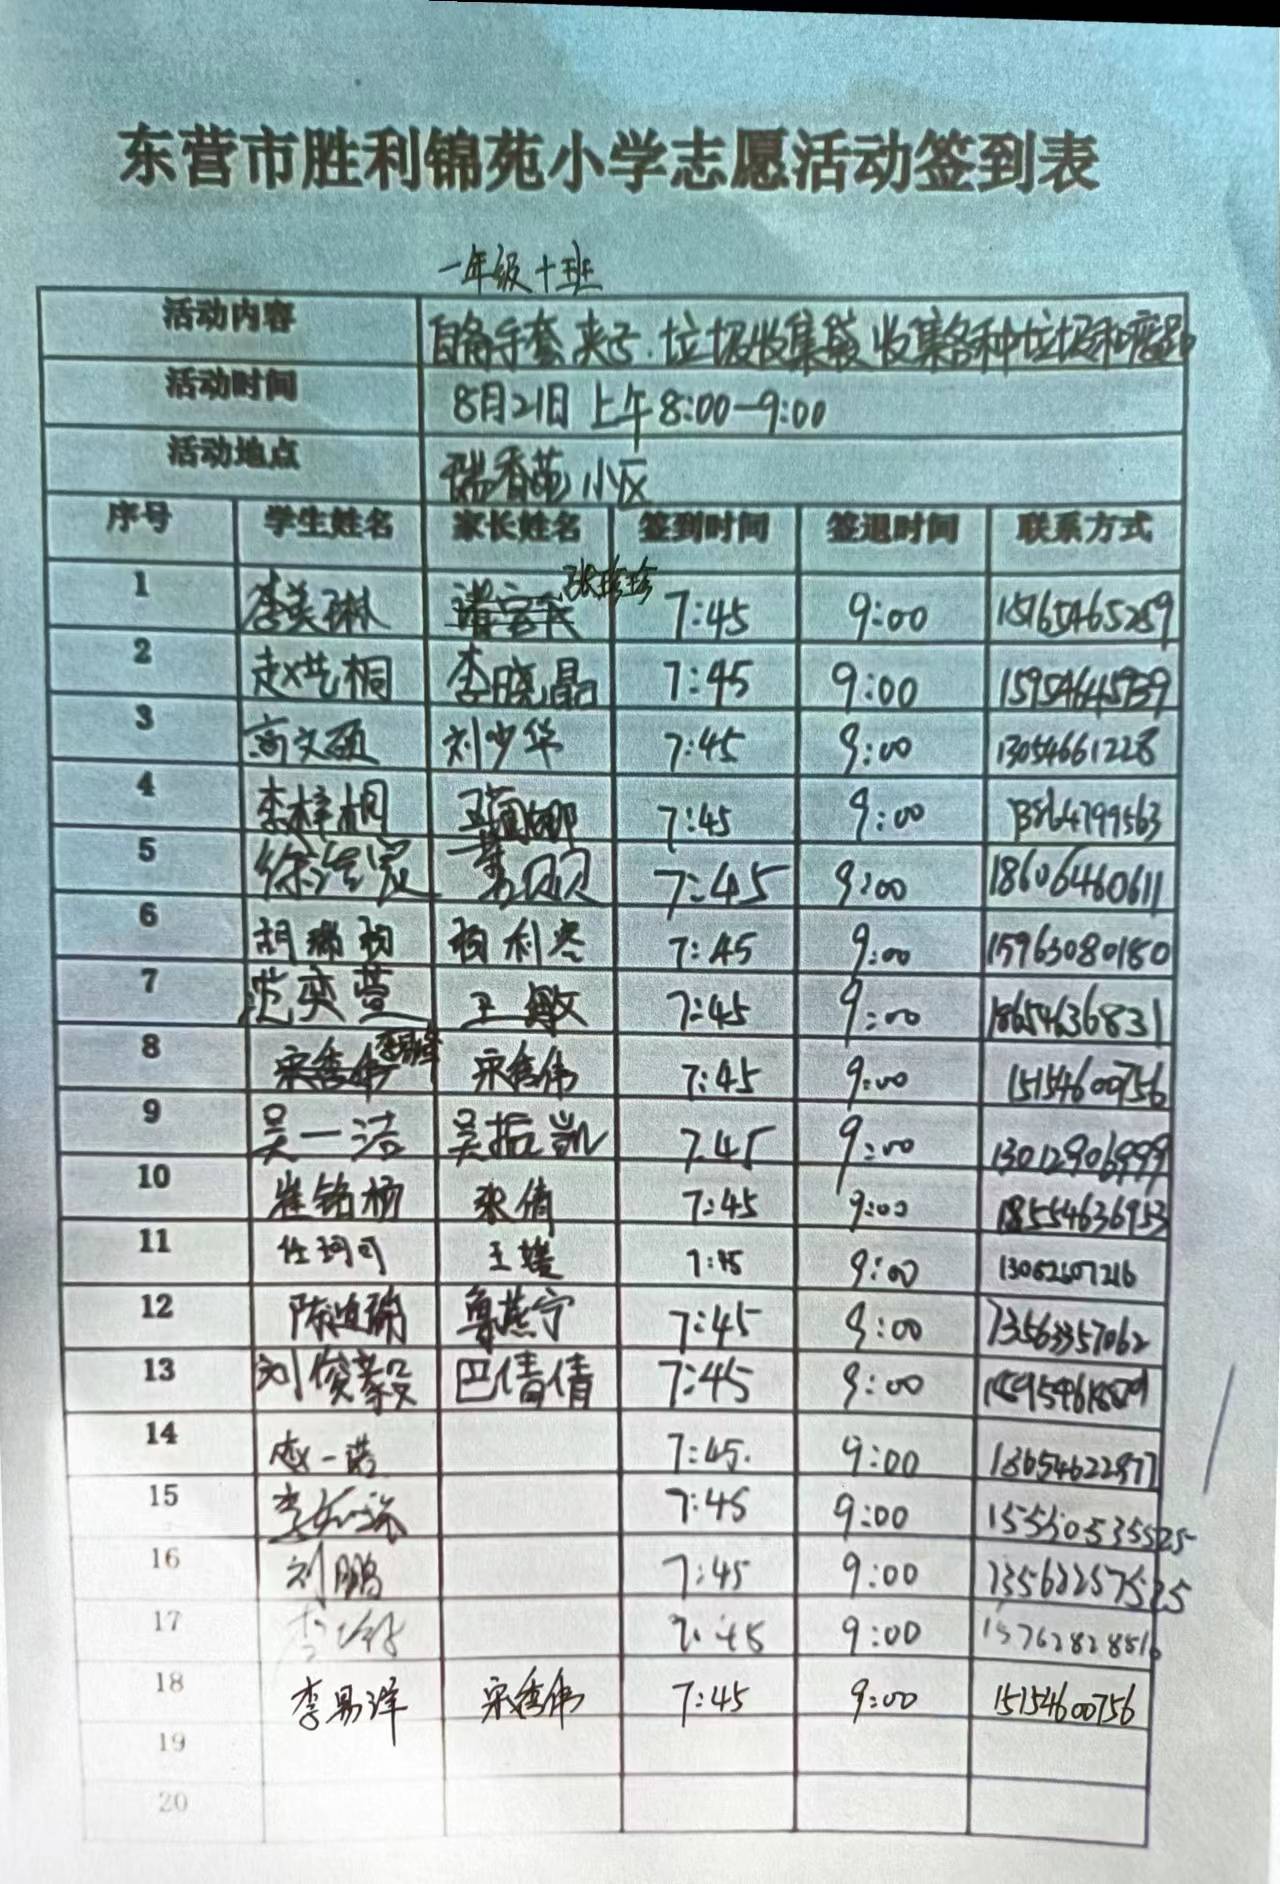 东营市胜利锦苑小学志愿活动签到表
一年级十班
活动内容 自备手套、夹子、垃圾收集袋 收集各种垃圾和
活动时间 8月21日 上午8:00-9:00
活动地点 瑞香苑小区
序号 学生姓名 家长姓名 签到时间 签退时间 联系方式
1 李美琳 张珍珍 7:45 9:00 15165465289
2 赵艺桐 李晓晶 7:45 9:00
3 高文硕 刘少华 7:45 9:00 13054661228
4 李梓桐 7:45 9:00 13864799563
5 7:45 9:00 18606460611
6 胡瑞 7:45 9:00 15963080180
7 范奕萱 王敏 7:45 9:00 18654636831
8 宋秀伟 宋秀伟 7:45 9:00 15154600756
9 吴一洁 吴振凯 7:45 9:00 13012906999
10 崔铭杨 张倩 7:45 9:00 18554636953
11 任珂可 王媛 7:45 9:00 13062607216
12 鲁燕宁 7:45 9:00 13563357062
13 刘俊毅 巴倩倩 7:45 9:00
14 赵一诺 7:45 9:00 13654622977
15 7:45 9:00 15550535525
16 刘鹏 7:45 9:00
17 7:45 9:00
18 李易泽 宋秀伟 7:45 9:00 15154600756
19
20